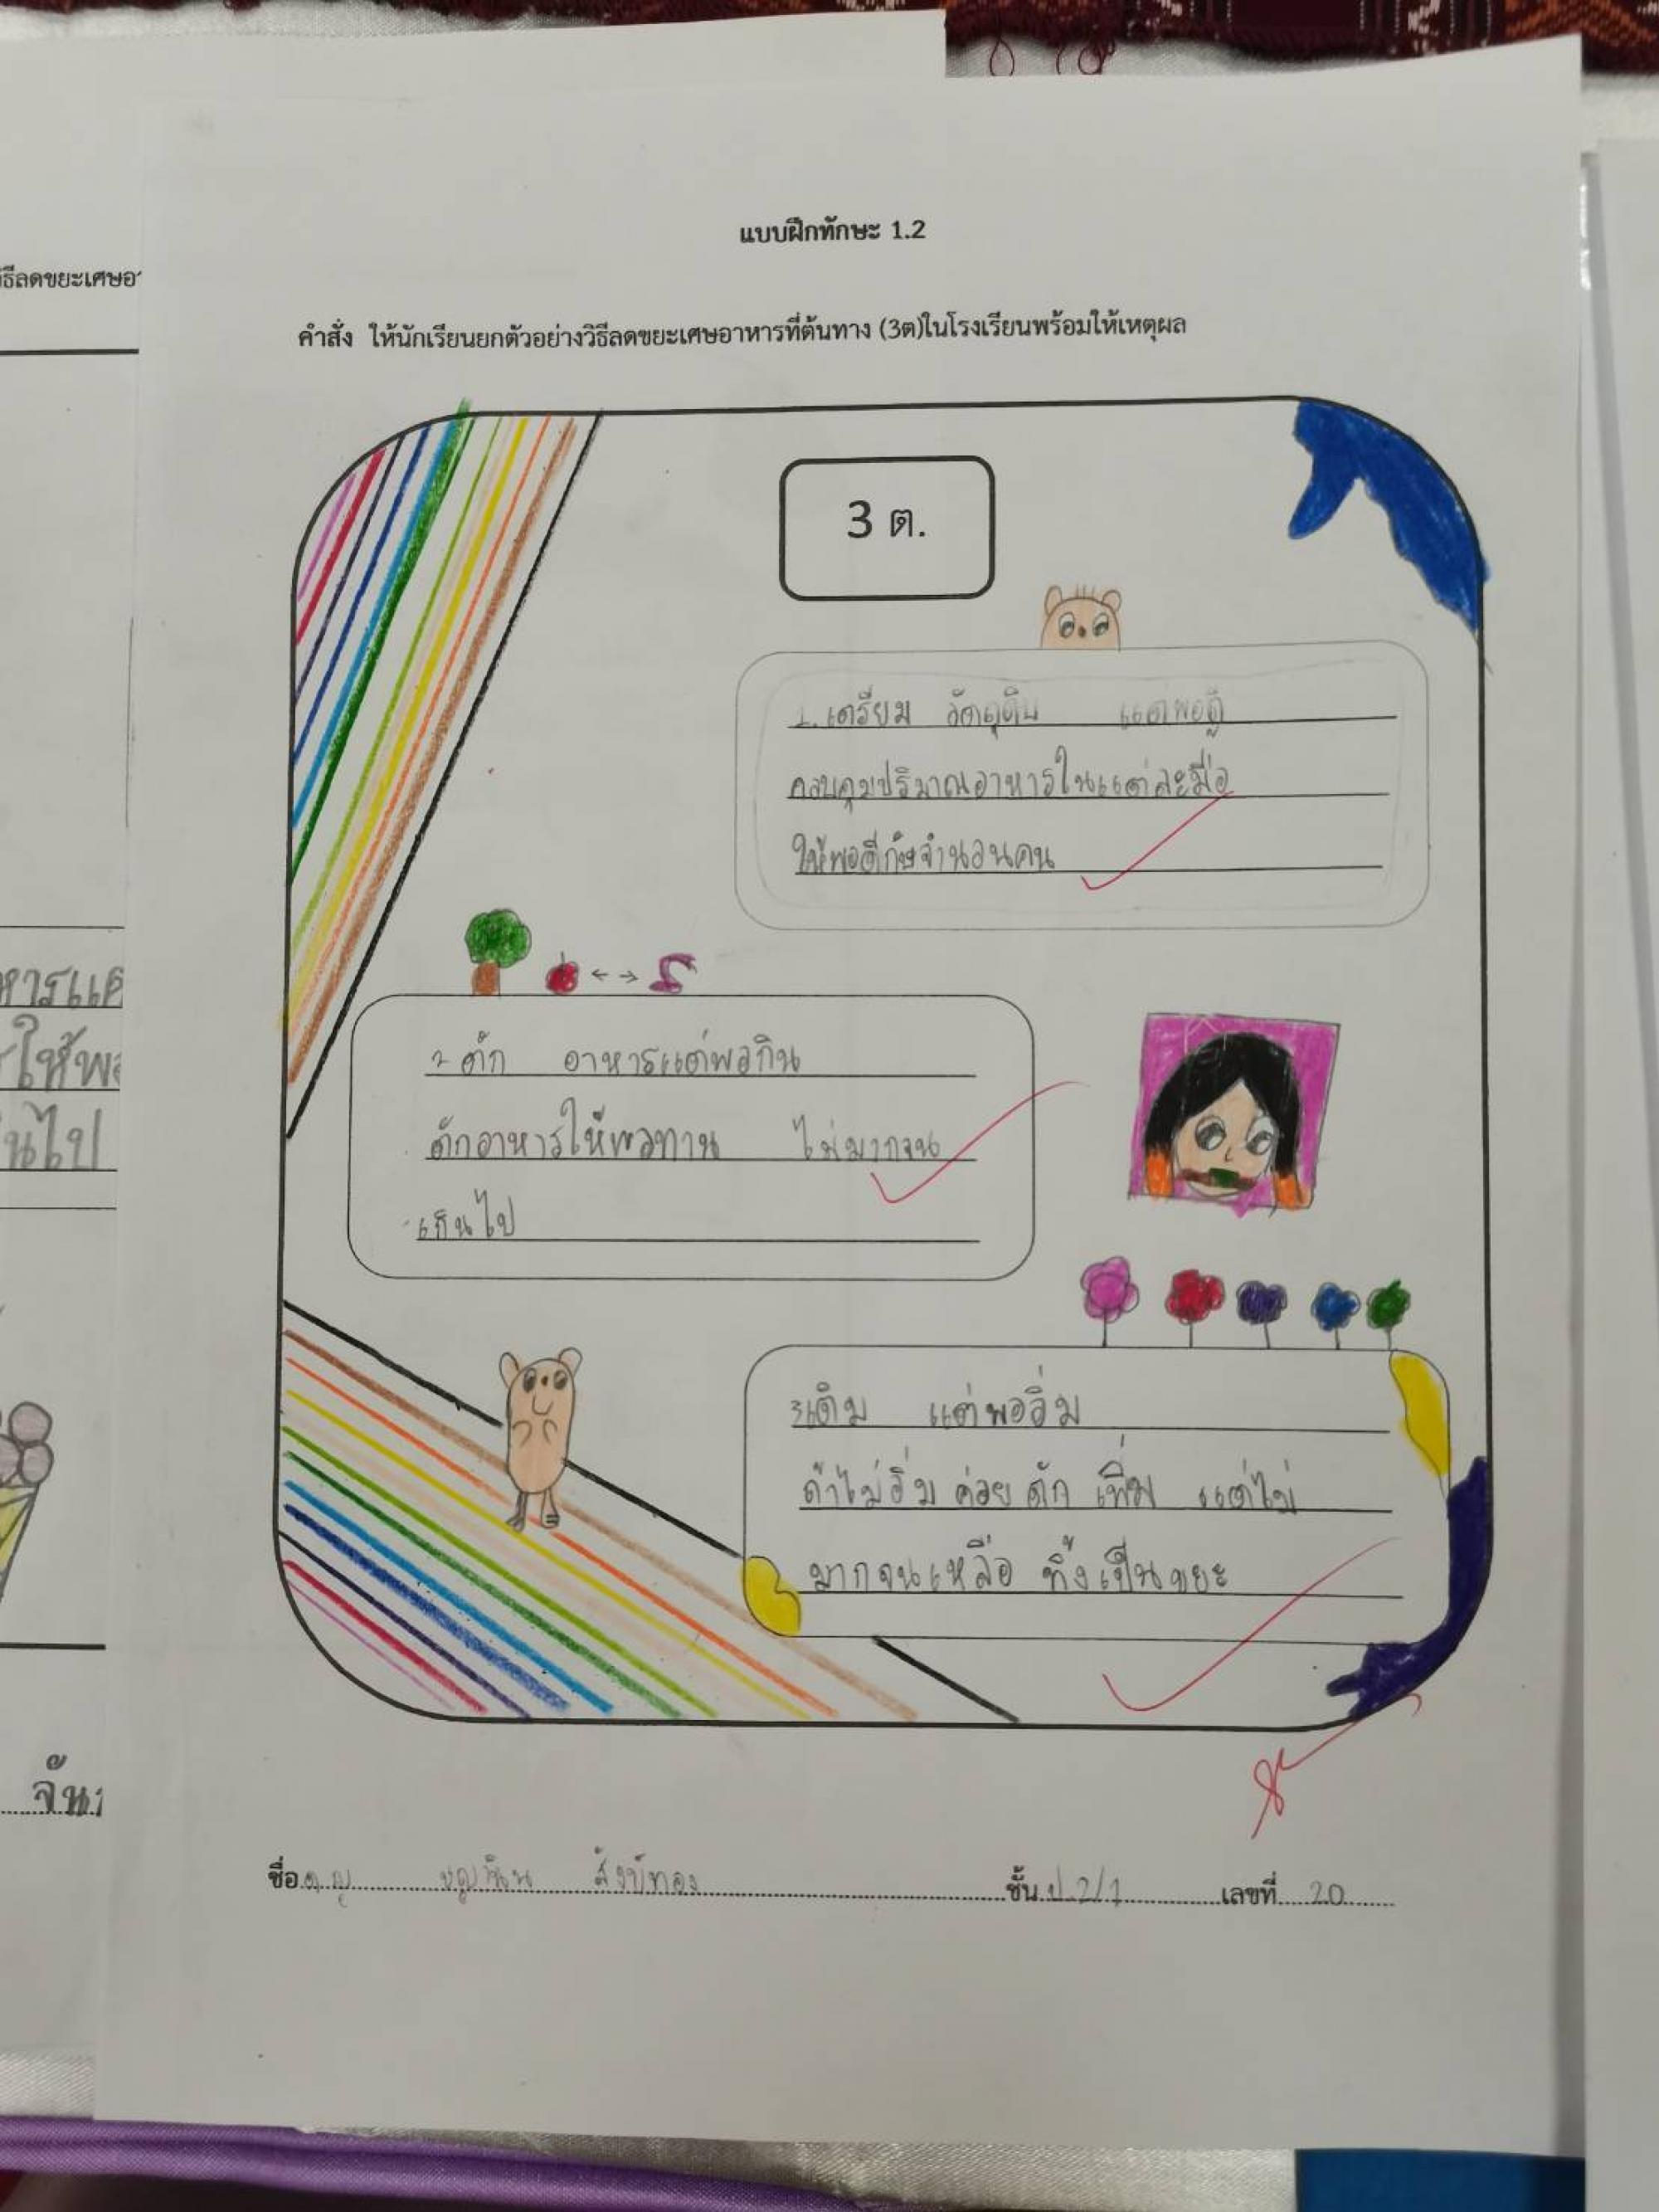 แบบฝึกทักษะ 1.2
วิธีลดขยะเศษอา
คำสั่ง ให้นักเรียนยกตัวอย่างวิธีลดขยะเศษอาหารที่ต้นทาง (3ต)ในโรงเรียนพร้อมให้เหตุผล
3 ต.
1. เตรียม วัตถุดิบ แต่พอดี
ควบคุมปริมาณอาหารในแต่ละมื่อ
ให้พอดีกับจำนวนคน
2 ตัก อาหารแต่พอกิน
ตักอาหารให้พอทาน ไม่มากจน
เกินไป
3เติม แต่พออิ่ม
ถ้าไม่อิ่ม ค่อย ตัก เพิ่ม แต่ไม่
มากจนเหลือ ทิ้งเป็นขยะ
หารแต
ให้พอ
นไป
จัน
ชื่อ ด ญ ชั้น ป.2/1 เลขที่ 20